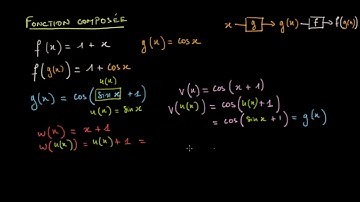 FONCTION COMPOSÉE
x → g → g(x) → f → f(g(x))
f(x) = 1 + x
g(x) = cos x
f(g(x)) = 1 + cos x
u(x)
g(x) = cos(sin x + 1)
u(x) = sin x
v(x) = cos(x + 1)
v(u(x)) = cos(u(x) + 1)
= cos(sin x + 1) = g(x)
w(x) = x + 1
w(u(x)) = u(x) + 1 =